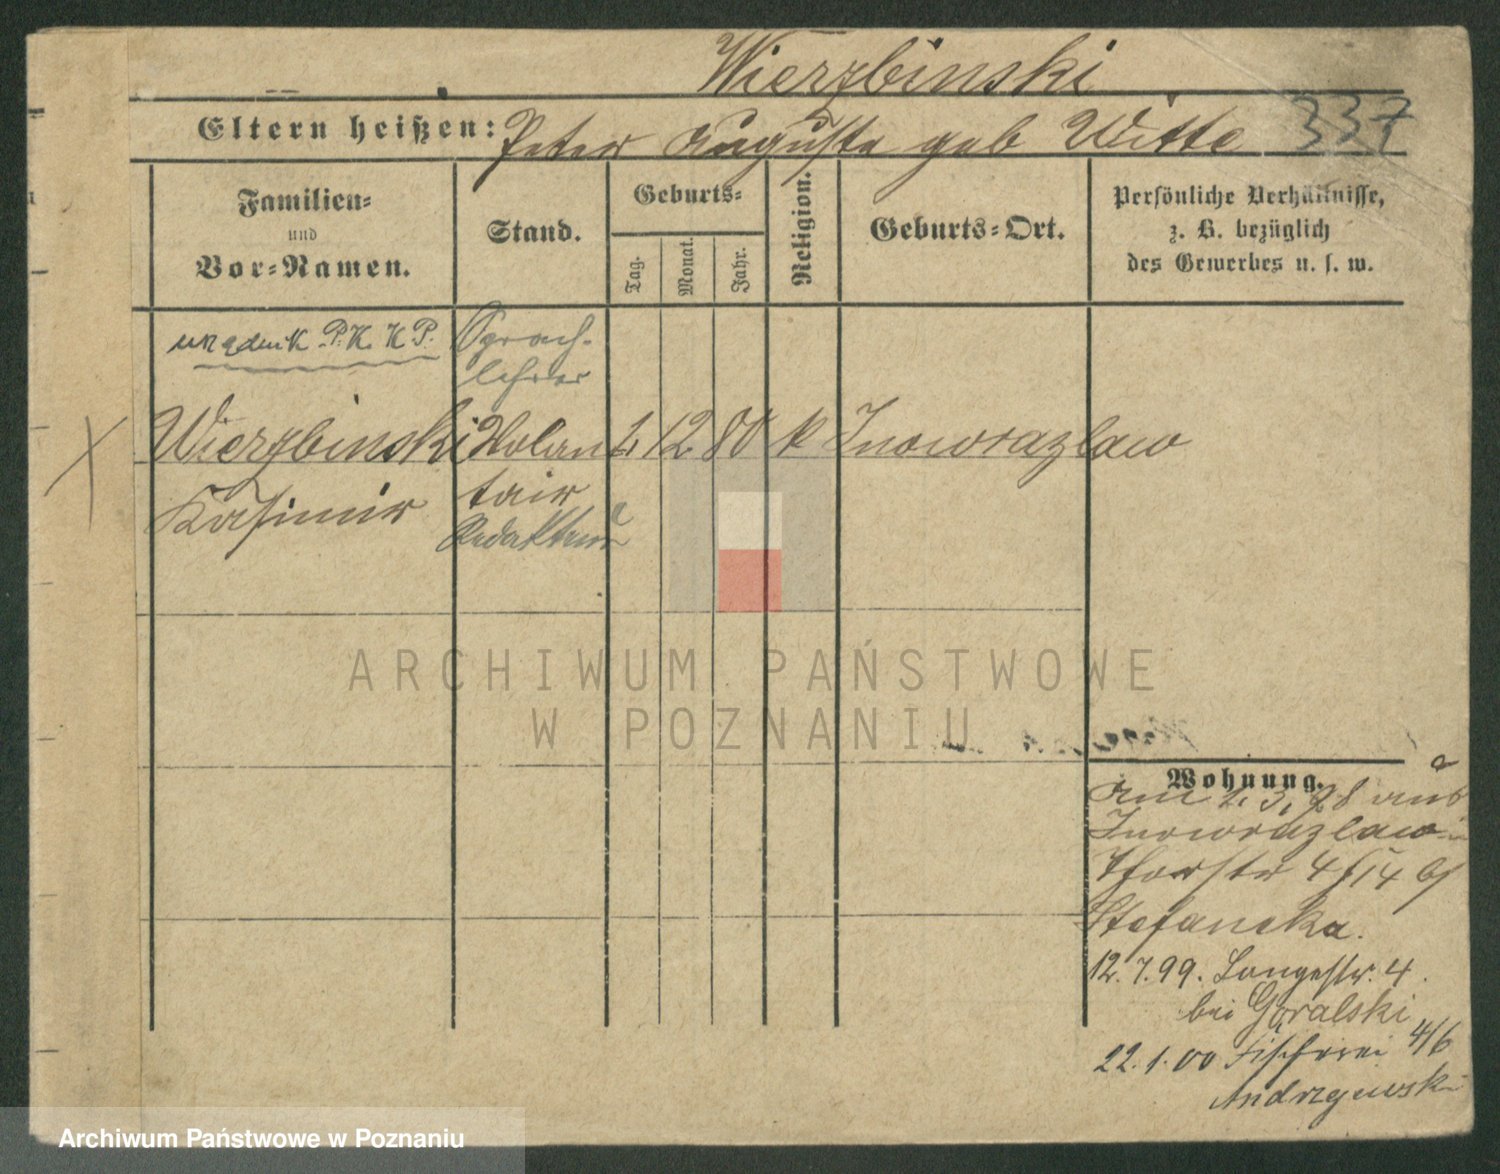 Wierzbinski
Eltern heißen: Peter Auguste geb Witte 337
Familien-
und
Vor-Namen.
Stand.
Geburts-
Tag.
Monat.
Jahr.
Religion.
Geburts-Ort.
Persönliche Verhältnisse,
z. B. bezüglich
des Gewerbes u. s. w.
urzędnik P.K.K.P.
Sprach-
lehrer
Wierzbinski Volon 1. 12 80 k Inowrazlaw
Kasimir
tair
Redakteur
ARCHIWUM PAŃSTWOWE
W POZNANIU
Wohnung.
Am 1. 3. 98 aus
Inowrazlaw
Thorstr 4/14 b/
Stefanska.
12.7.99. Langestr. 4.
bei Goralski
22.1.00 Fischerei 4/6
Andrzejewski
Archiwum Państwowe w Poznaniu